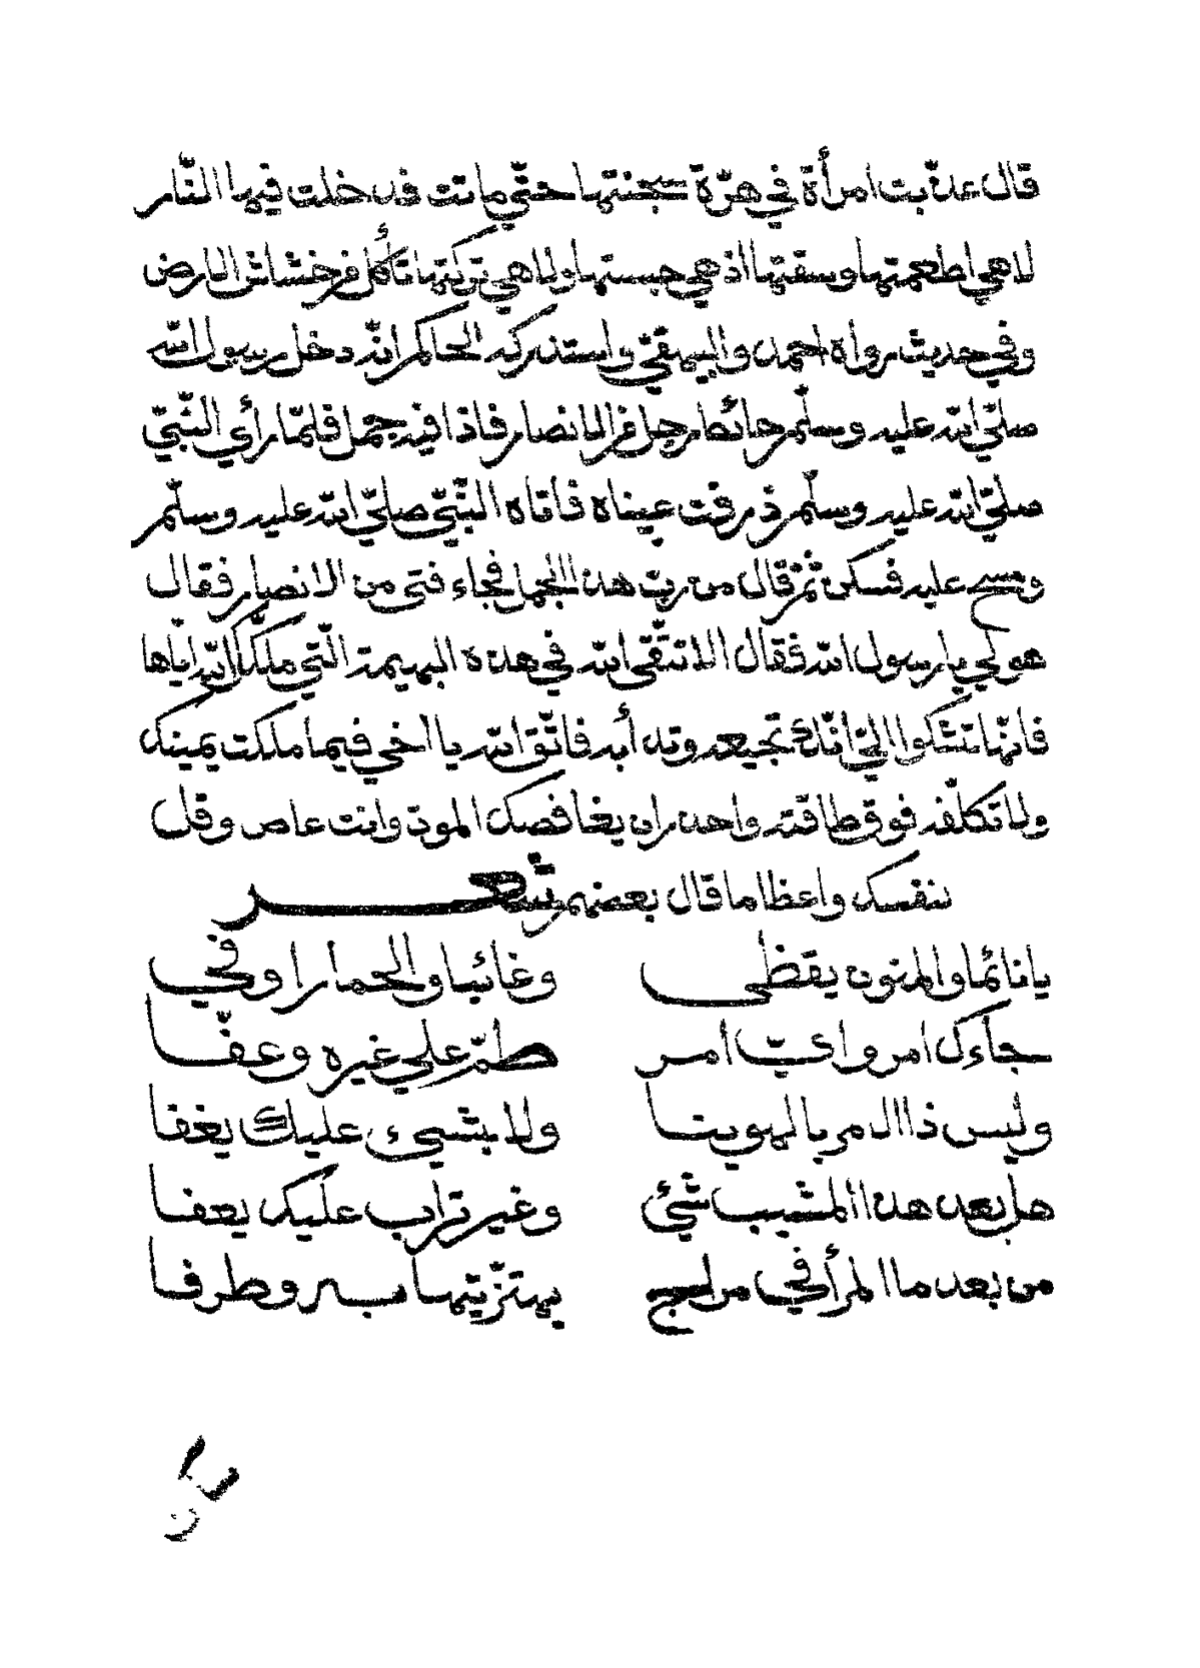 قال عذّبت امرأة في هرّة سجنتها حتّي ماتت فدخلت فيها النّار
لا هي اطعمتها وسقتها اذ هي حبستها ولا هي تركتها تأكل من خشاش الارض
وفي حديث رواه احمد والبيهقيّ واستدركه الحاكم انّه دخل رسول الله
صلّي الله عليه وسلّم حائطا رجل من الانصار فاذا فيه جمل فلمّا رأي النّبيّ
صلّيّ الله عليه وسلّم ذرفت عيناه فأتاه النّبيّ صلّيّ الله عليه وسلّم
ومسح عليه فسكن ثمّ قال من ربّ هذا الجمل فجاء فتى من الانصار فقال
هو لي يا رسول الله فقال الا تتّقى الله في هذه البهيمة الّتي ملّكك الله ايّاها
فانّها تشكوا اليّ انّك تجيعه وتدأبه فاتّق الله يا اخي فيما ملكت يمينك
ولا تكلّفه فوق طاقته واحذر ان يغافصك الموت وانت عاص وقل
لنفسك واعظا ما قال بعضهم شعر
يا نائما والمنون يقظى وغائبا والحمار اوفي
جاءك امر وايّ امر طمّ علي غيره وعفّا
وليس ذا الامر بالهوينا ولا بشيء عليك يخفا
هل بعد هذا المشيب شئ وغير تراب عليك يعفا
من بعد ما المرأ في مراح يهتزّ تيها به وطرفا